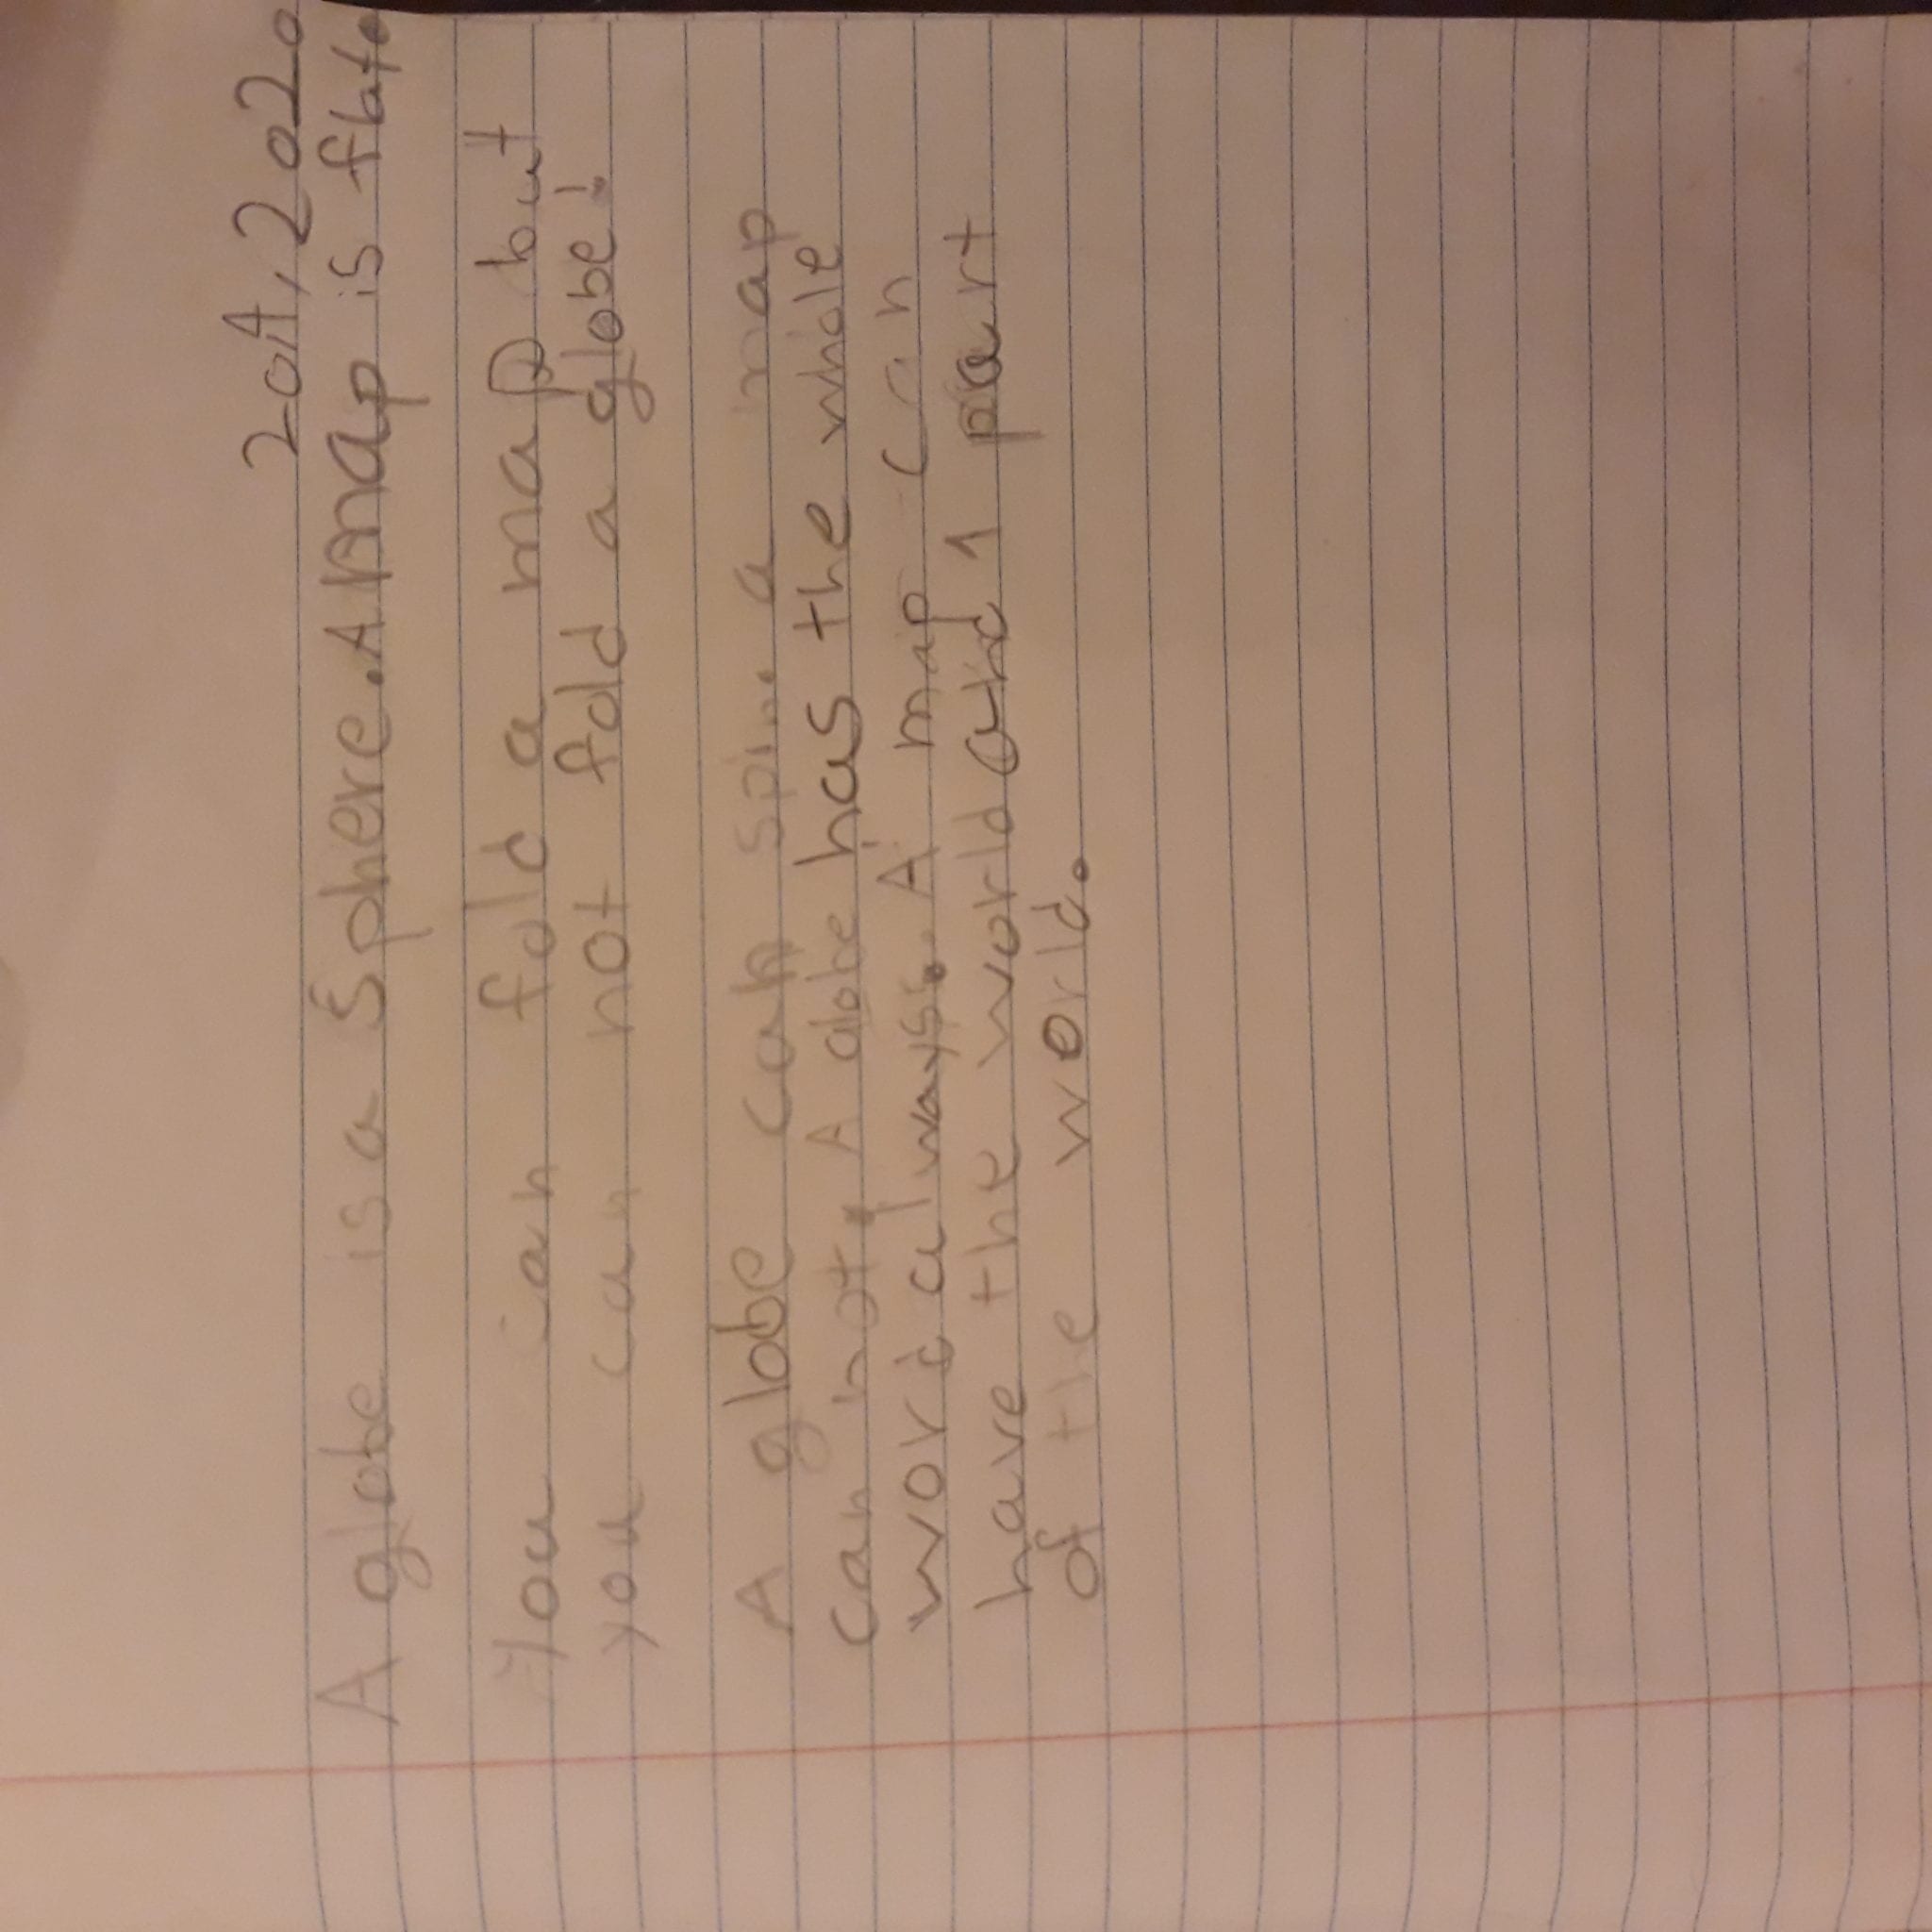 2-04, 2020
A globe is a Sphere. A map is flat.
You can fold a map but
you can not fold a globe!
A globe can spin. a map
can not. A globe has the whole
world always. A map can
have the world and 1 part
of the world.